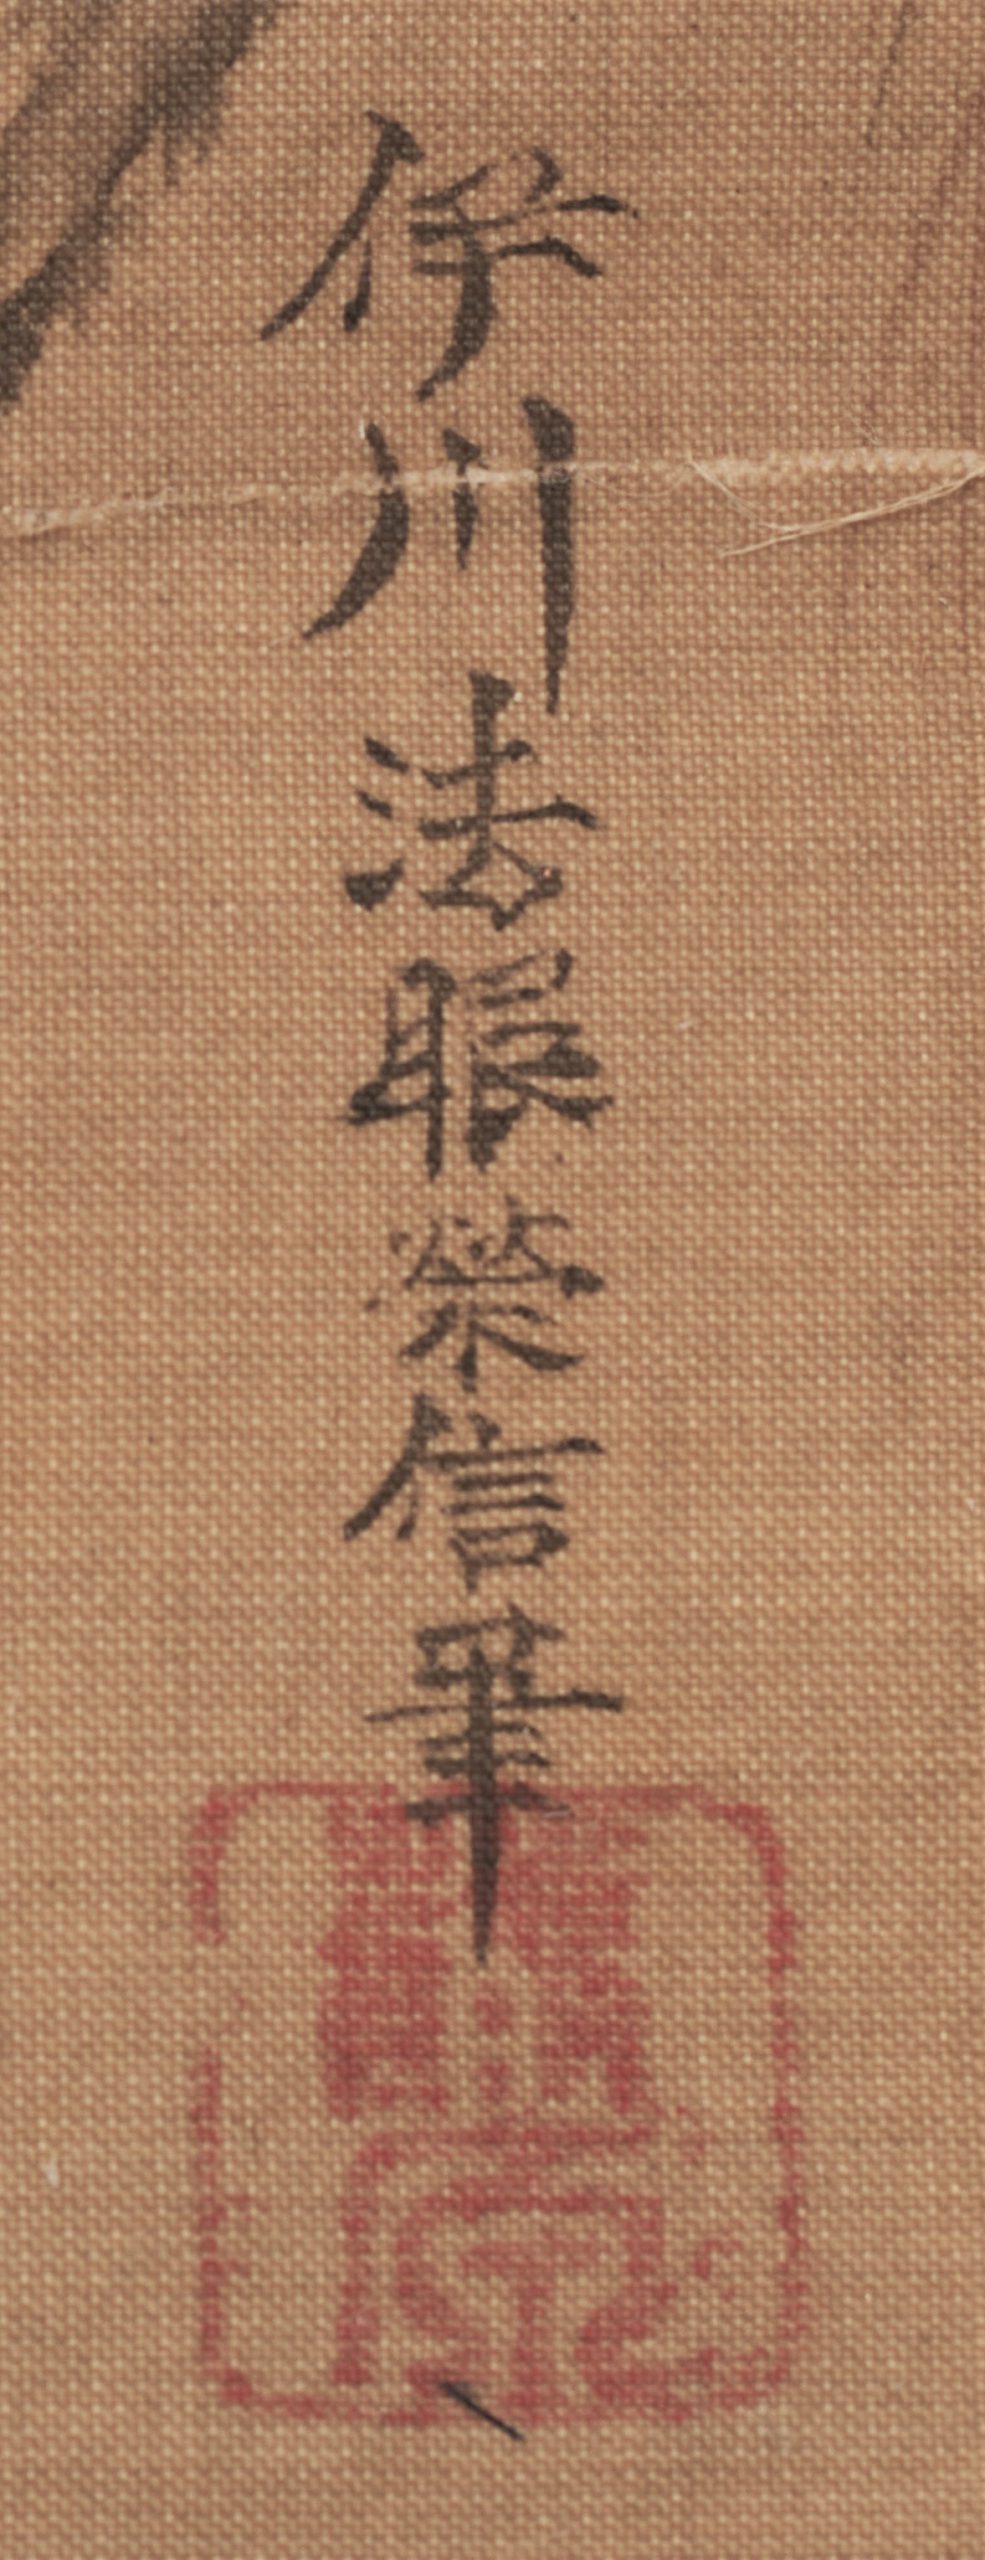 伊川法眼榮信筆